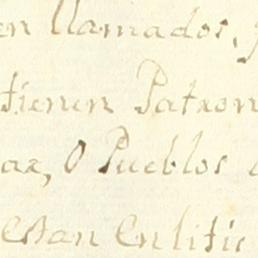 en llamados,
tienen Patron
ar, O Pueblos
estan en litis